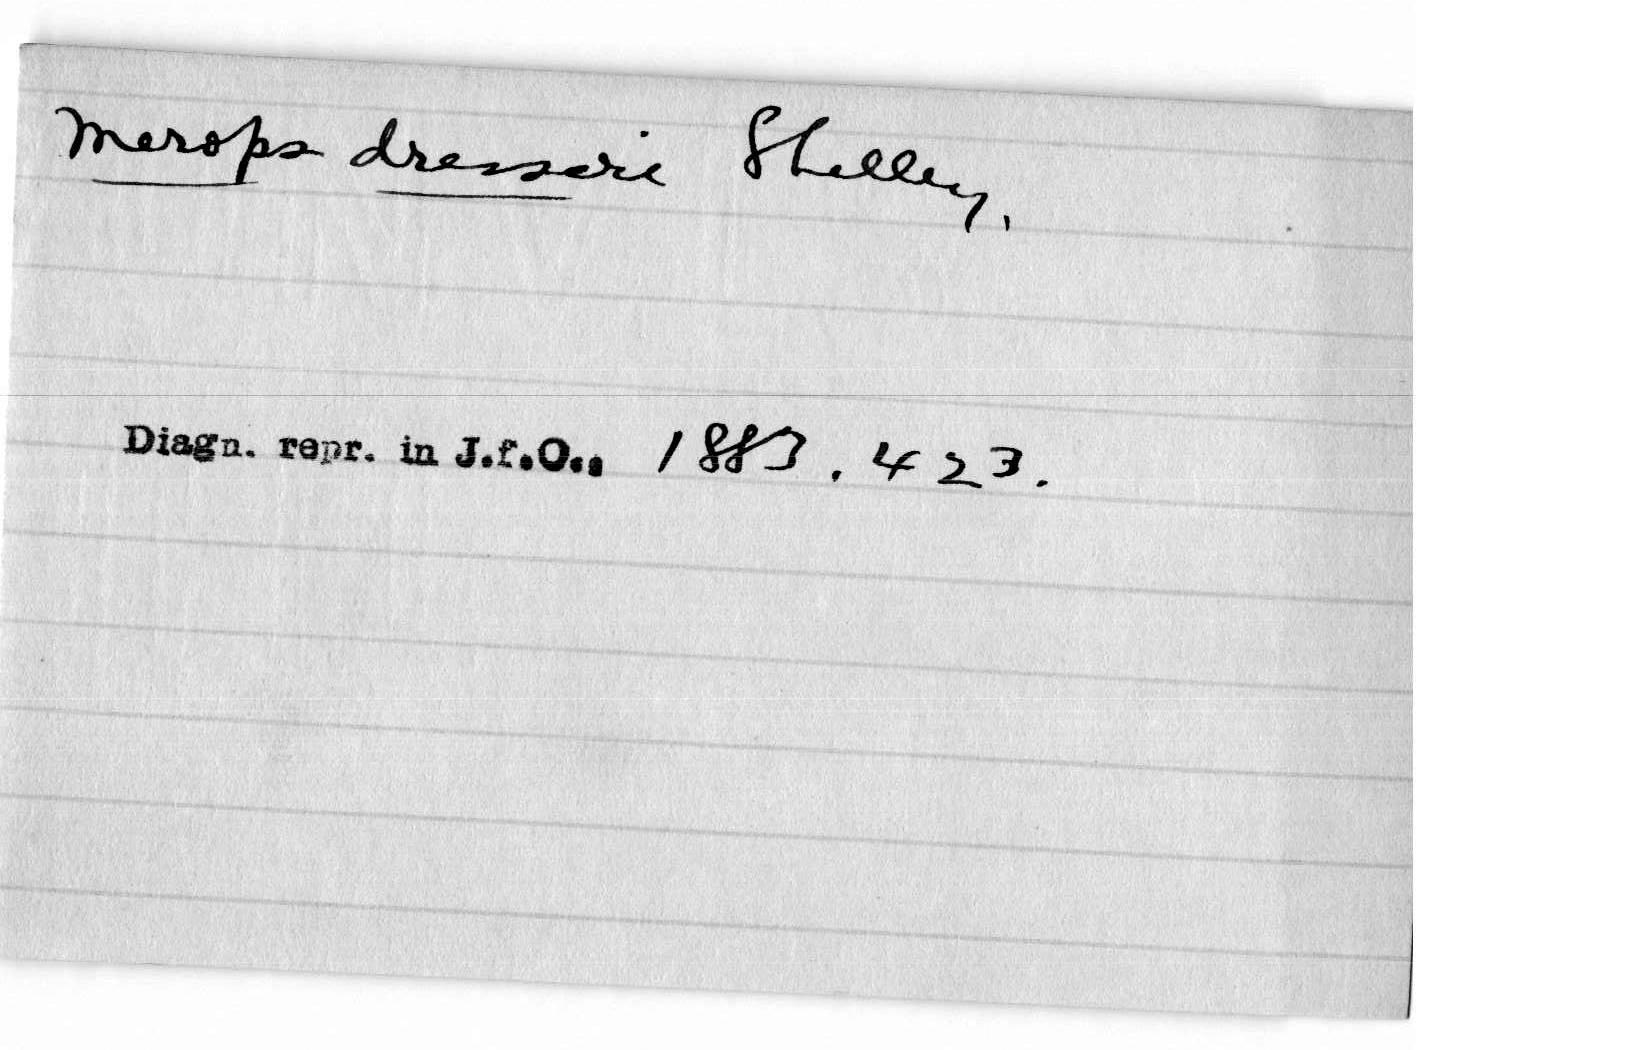 Merops dresseri Shelley.
Diagn. repr. in J.f.O., 1883. 423.